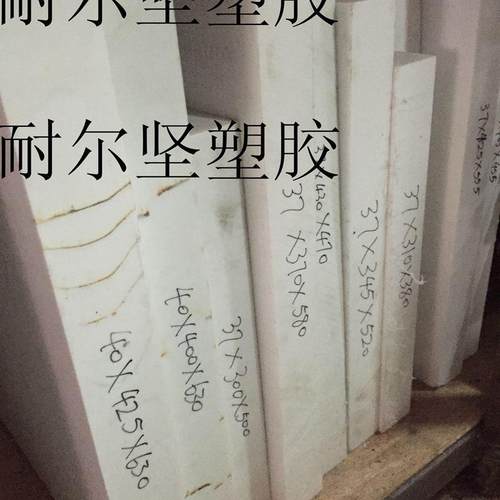 耐尔坚塑胶
耐尔坚塑胶
40X425X630
40X400X630
37X300X500
37X370X580
37X345X520
37X310X380